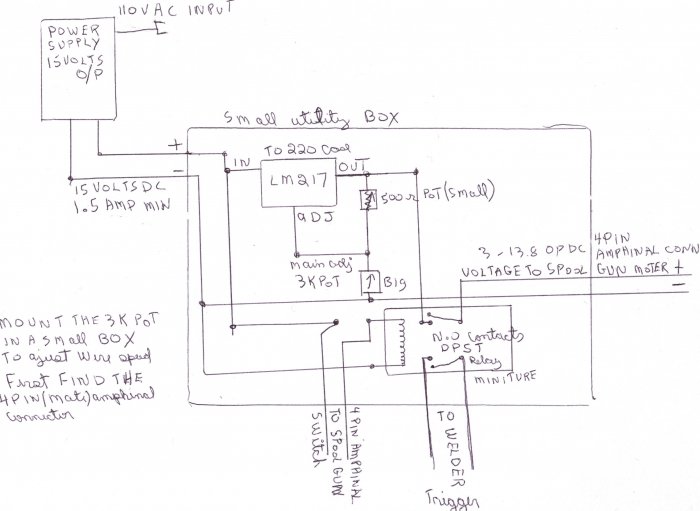 110VAC INPUT
POWER
SUPPLY
15VOLTS
O/P
Small utility BOX
+
-
15 VOLTS DC
1.5 AMP MIN
TO 220 Case
IN
LM217
OUT
aDJ
500Ω POT (small)
main adj
3K POT
Big
3 - 13.8 OP DC
VOLTAGE TO SPOOL
4PIN
AMPHINAL CONN
GUN MOTER +
-
N.O Contacts
DPST
Relay
MINITURE
MOUNT THE 3K POT
IN A Small BOX
TO ajust Wire speed
First FIND THE
4PIN (mate) amphinal
Connector
Switch
TO SPOOL GUN
4PIN AMPHINAL
TO WELDER
Trigger